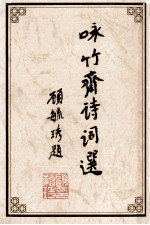 咏竹齋诗词選
顧毓琇題